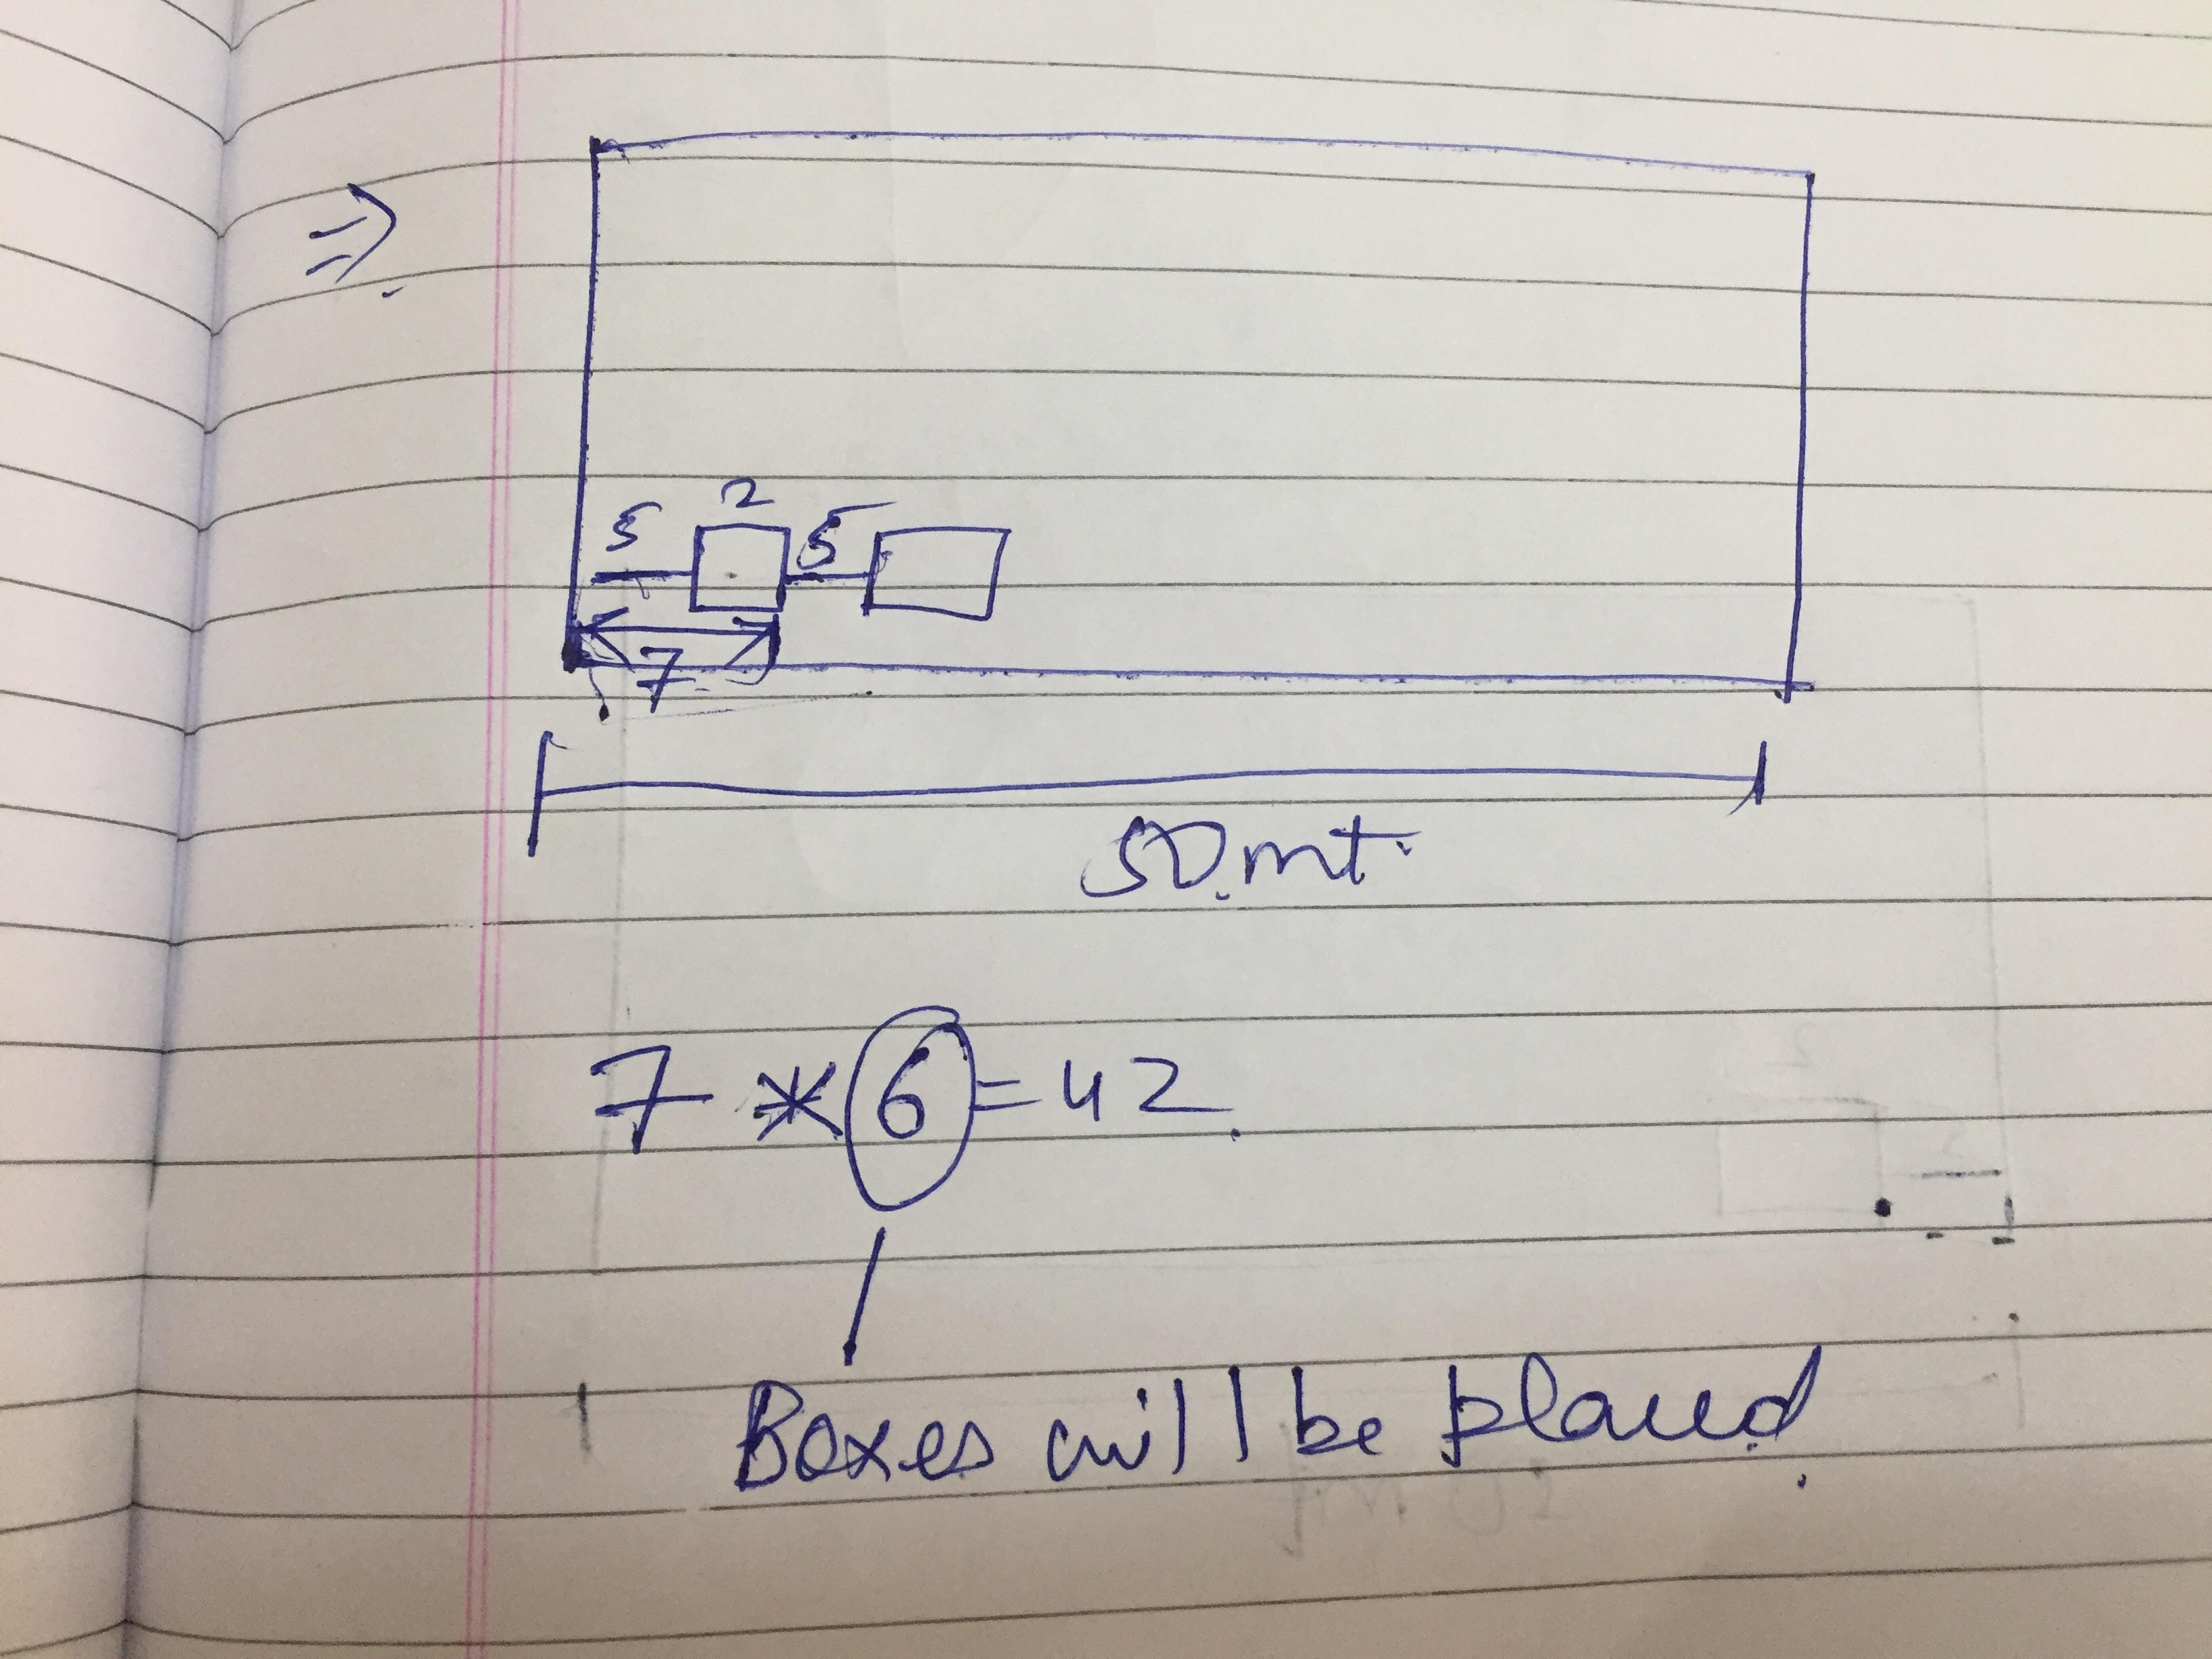 ⇒
2
5 5
7
50 mt.
7 * 6 = 42.
Boxes will be placed.